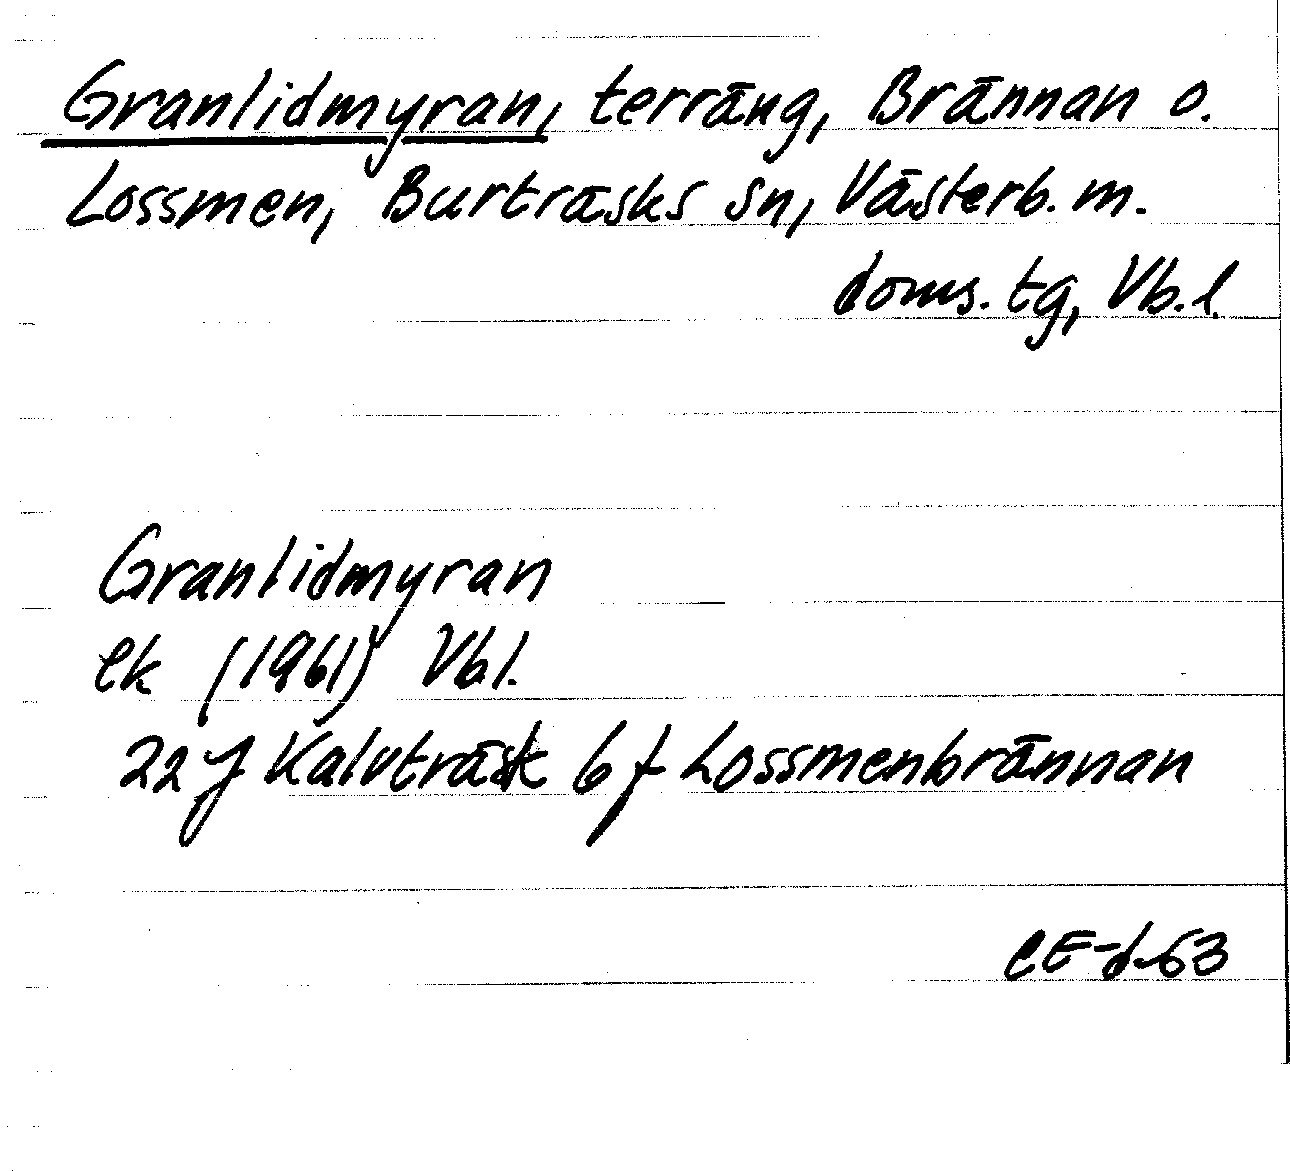 Granlidmyran, terräng, Brännan o.
Lossmen, Burträsks sn, Västerb. m.
doms. tg, Vb. l.
Granlidmyran
ek (1961) Vb l.
22 J Kalvträsk 6 f Lossmenbrännan
CE-d-63